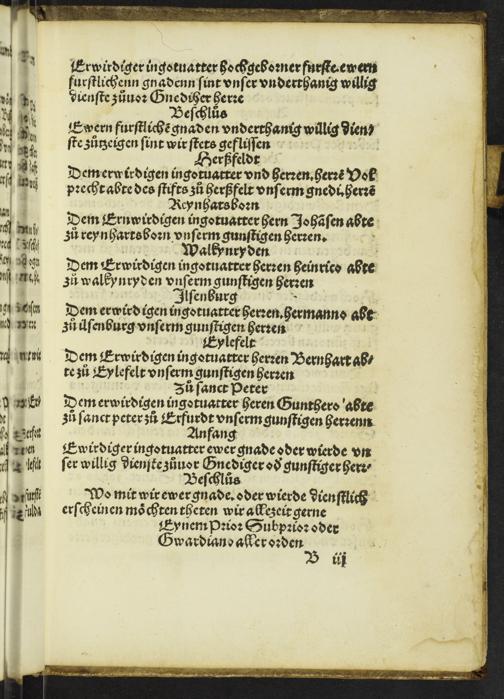 Erwirdiger ingotuatter hochgeborner furste. ewern
furstlichenn gnadenn sint vnser vnderthanig willig
dienste zůuor Gnediher herre
Beschlůs
Ewern furstlichē gnaden vnderthanig willig dien/
ste zůtzeigen sint wir stets geflissen
Herßfeldt
Dem erwirdigen ingotuatter vnd herren, herrē Vol
precht abte des stifts zů herßfelt vnserm gnedi. herrē
Reynhatsborn
Dem Ernwirdigen ingotuatter hern Johāsen abte
zů reynhartsborn vnserm gunstigen herren.
Walkynryden
Dem Erwirdigen ingotuatter herren heinrico abte
zů walkynryden vnserm gunstigen herren
Jlsenburg
Dem erwirdigen ingotuatter herren. hermanno abt
zů ilsenburg vnserm gunstigen herren
Eylefelt
Dem Erwirdigen ingotuatter herren Bernhart ab/
te zů Eylefelt vnserm gunstigen herren
Zů sanct Peter
Dem erwirdigen ingotuatter heren Gunthero abte
zů sanct peter zů Erfurdt vnserm gunstigen herrenn
Anfang
Ewirdiger ingotuatter ewer gnade oder wierde vn
ser willig dienste zůuor Gnediger od gunstiger herr/
Beschlůs
Wo mit wir ewer gnade. oder wierde dienstlich
erscheinen möchten theten wir allezeit gerne
Eynem Prior Subprior oder
Gwardiano aller orden
B iij